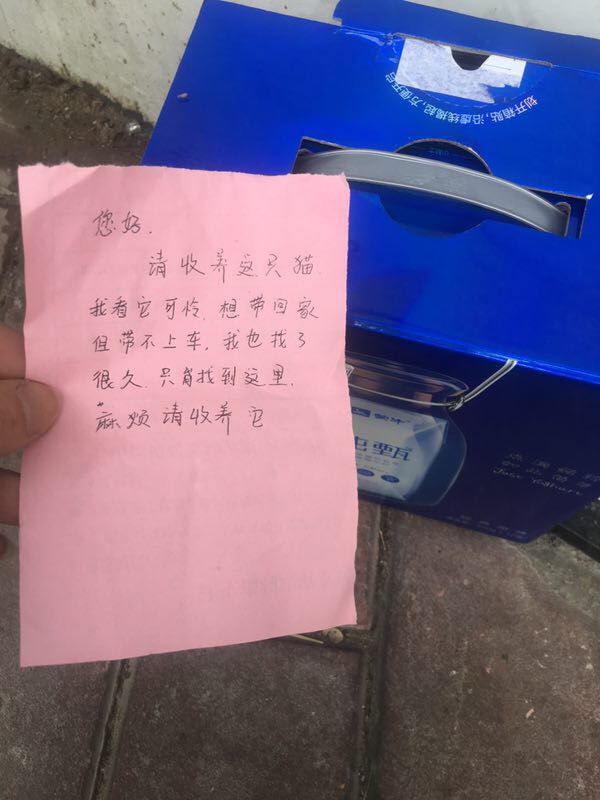 您好.
请收养这只猫.
我看它可怜.想带回家
但带不上车,我也找了
很久.只肖找到这里.
麻烦请收养它
划开箱贴,沿虚线掀起,方便开启
蒙牛
Just Yoghurt